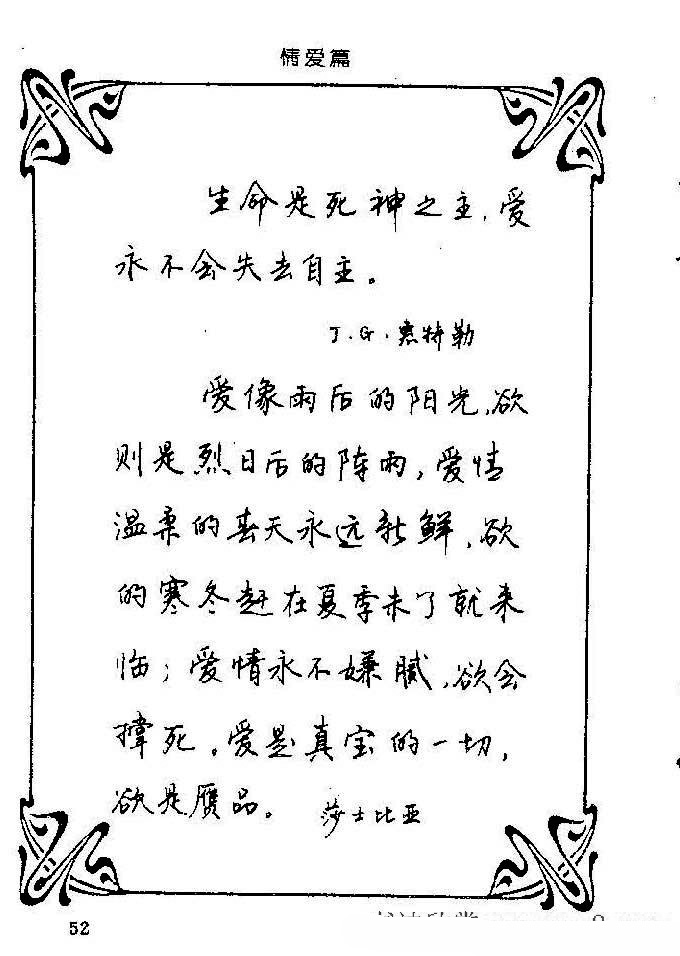 情爱篇
生命是死神之主，爱
永不会失去自主。
J.G.惠特勒
爱像雨后的阳光，欲
则是烈日后的阵雨，爱情
温柔的春天永远新鲜，欲
的寒冬赶在夏季未了就来
临；爱情永不嫌腻，欲会
撑死。爱是真宝的一切，
欲是赝品。 莎士比亚
52